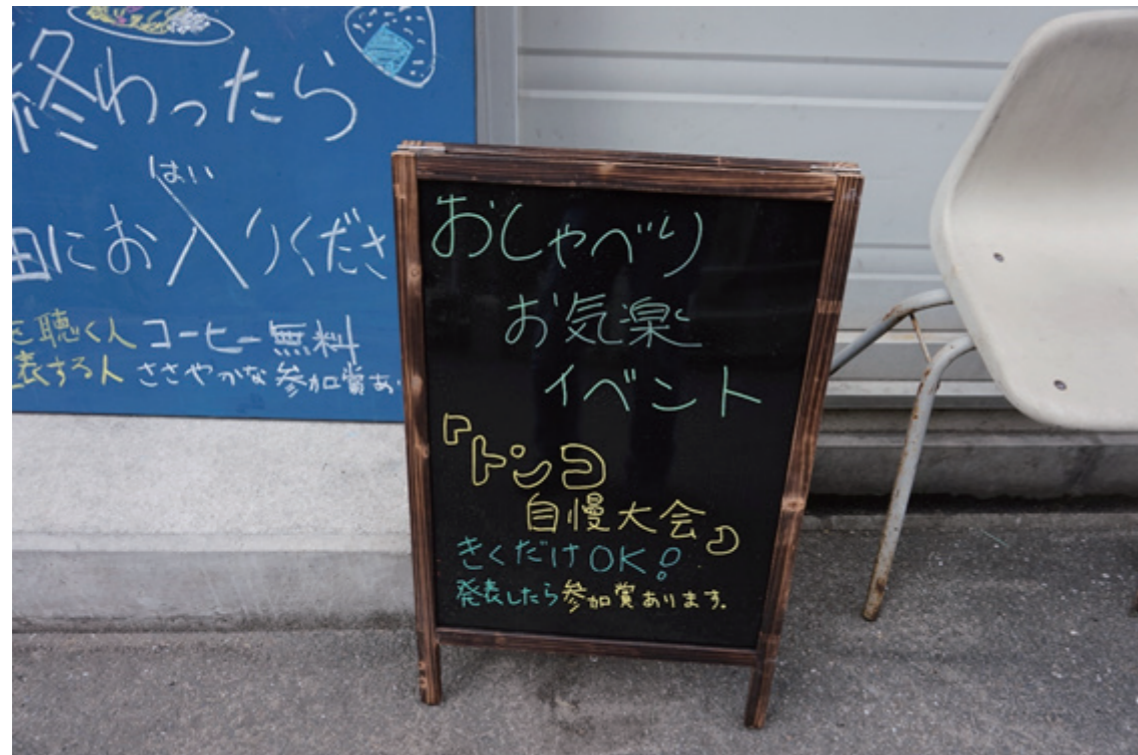 終わったら
はい
にお入りくださ
を聴く人 コーヒー無料
表する人 ささやかな参加賞あ
おしゃべり
お気楽
イベント
『トンコ
自慢大会』
きくだけOK!
発表したら参加賞あります。